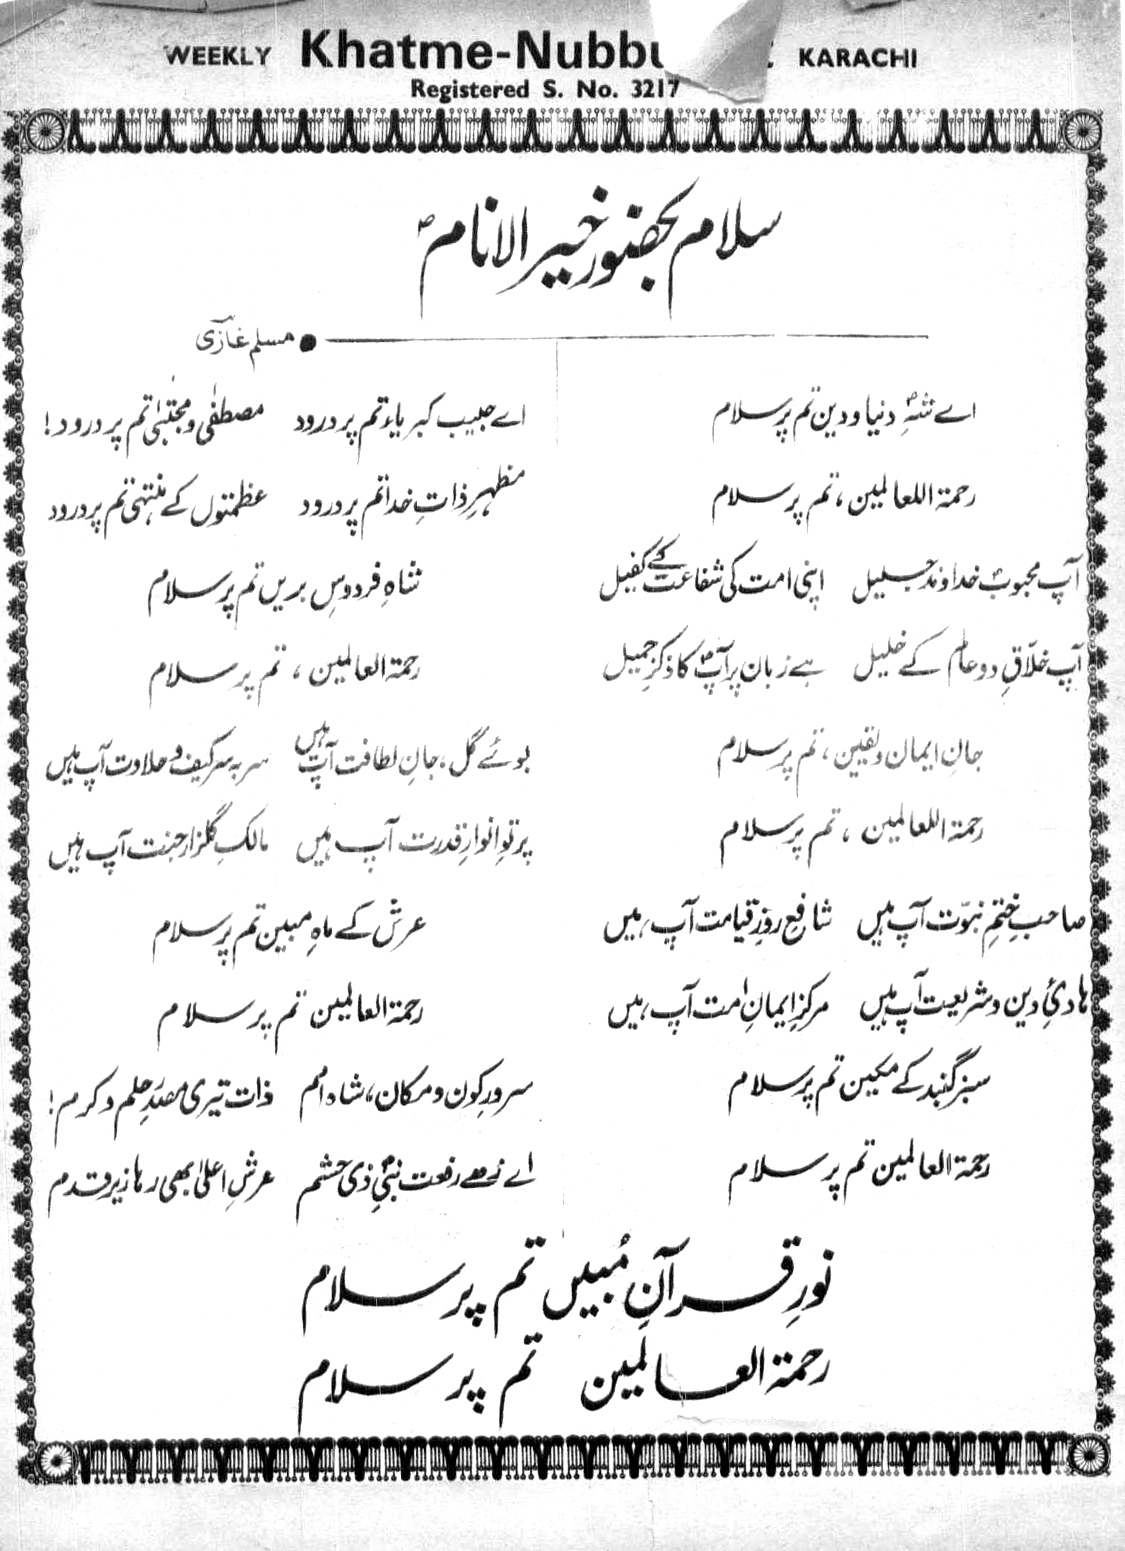 WEEKLY Khatme-Nubbu KARACHI
Registered S. No. 3217
سلام بحضور خیر الانامؐ
مسلم غازی
اے شہِ دنیا و دین تم پر سلام
رحمۃ اللعالمین، تم پر سلام
اے حبیب کبریاء تم پر درود مصطفٰی و مجتبٰی تم پر درود!
مظہرِ ذاتِ خدا تم پر درود عظمتوں کے منتہی تم پر درود
آپ محبوب خداوند جلیل اپنی امت کی شفاعت کے کفیل
آپ خلّاقِ دو عالم کے خلیل ہے زبان پر آپؐ کا ذکرِ جمیل
شاہِ فردوسِ بریں تم پر سلام
رحمۃ العالمین، تم پر سلام
جانِ ایمان و یقین، تم پر سلام
رحمۃ اللعالمین، تم پر سلام
بوئے گل، جانِ لطافت آپ ہیں سر بہ سر کیف و حلاوت آپ ہیں
پرتوِ انوارِ قدرت آپ ہیں مالکِ گلزارِ جنت آپ ہیں
صاحبِ ختمِ نبوّت آپ ہیں شافعِ روزِ قیامت آپ ہیں
ہادئ دین و شریعت آپ ہیں مرکزِ ایمانِ امت آپ ہیں
عرش کے ماہِ مبین تم پر سلام
رحمۃ العالمین تم پر سلام
سبز گنبد کے مکین تم پر سلام
رحمۃ العالمین تم پر سلام
سرورِ کون و مکان، شاہ امم ذات تیری مصدرِ حلم و کرم!
اے زہے رفعت نبیِؐ ذی حشم عرشِ اعلیٰ بھی رہا زیر قدم
نورِ قرآنِ مُبیں تم پر سلام
رحمۃ العالمین تم پر سلام